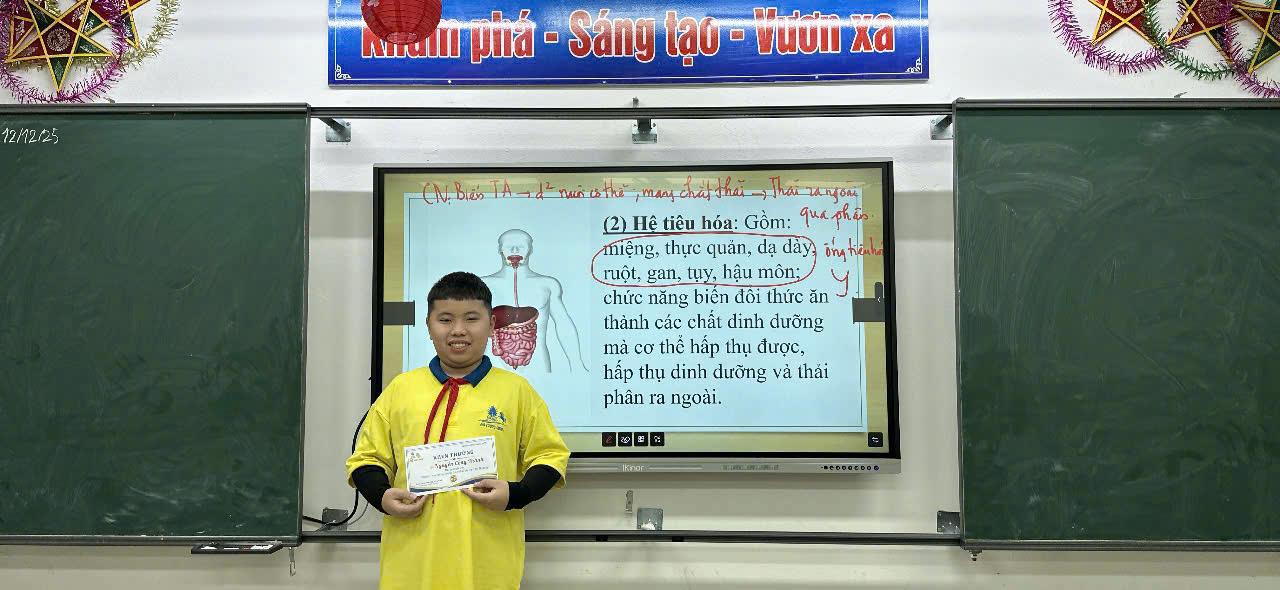 Khám phá - Sáng tạo - Vươn xa
12/12/25
CN: Biến TĂ → d² nuôi cơ thể, mang chất thải → Thải ra ngoài
qua phân.
(2) Hệ tiêu hóa: Gồm:
miệng, thực quản, dạ dày,
ruột, gan, tụy, hậu môn;
ống tiêu hóa
chức năng biến đổi thức ăn
thành các chất dinh dưỡng
mà cơ thể hấp thụ được,
hấp thụ dinh dưỡng và thải
phân ra ngoài.
KHEN THƯỞNG
Nguyễn Công Thành
iKinor